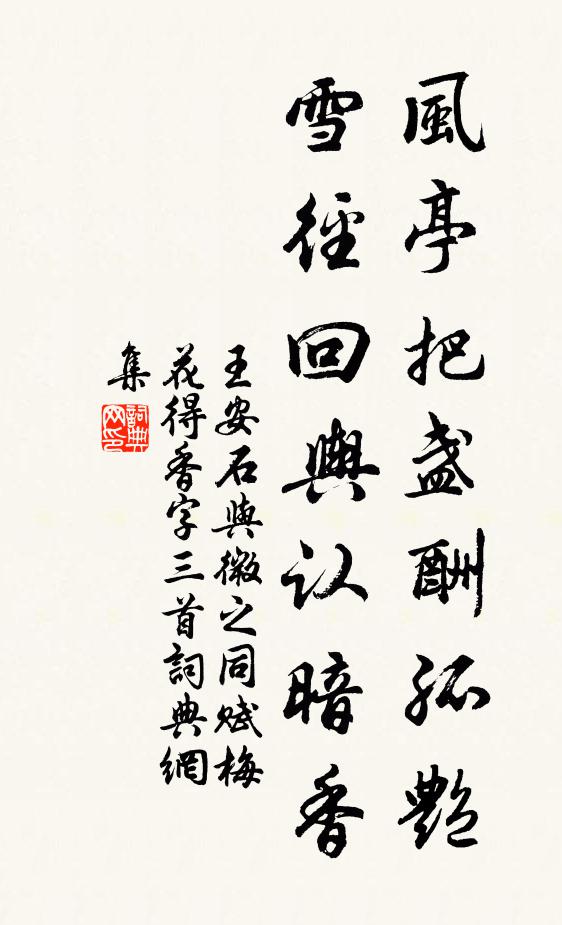 風亭把盞酬孤艷
雪徑回輿认暗香
王安石與微之同賦梅
花得香字三首詞典網
集
詞典
网印